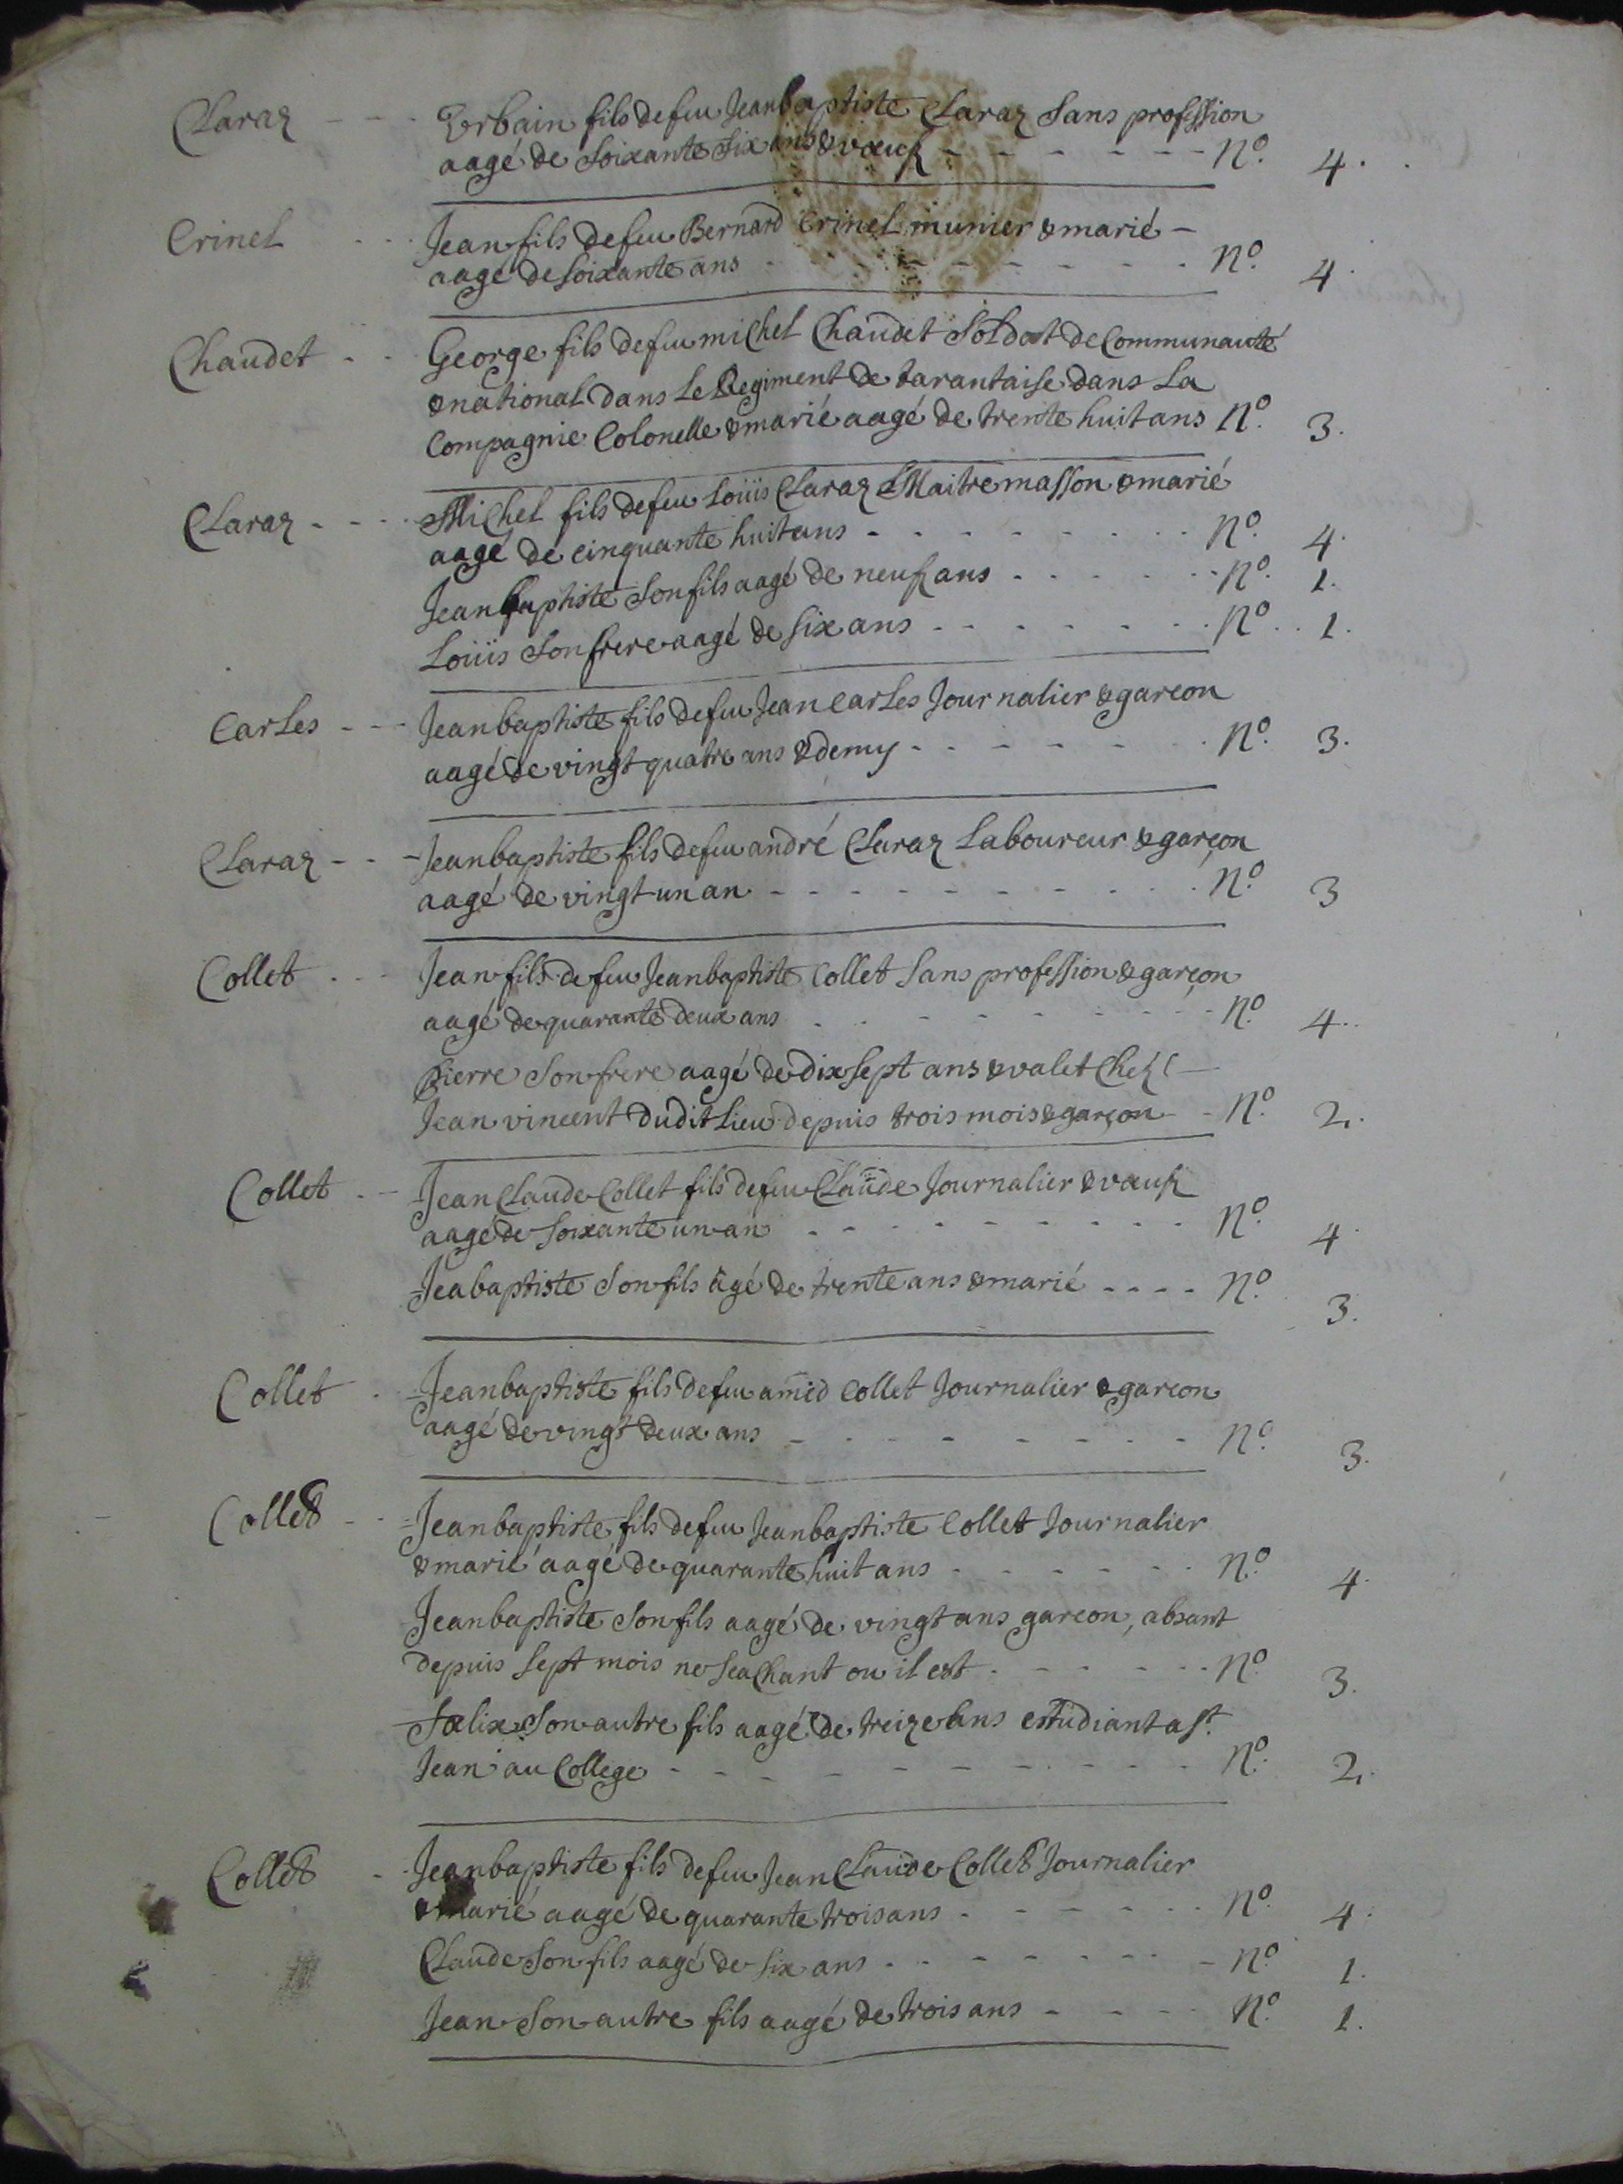 Claraz - - - Urbain fils de feu Jeanbaptiste Claraz Sans profession
aagé de Soixante Six ans & vœuf - - - - - - - N.º 4.
Crinel - - - Jean fils de feu Bernard Crinel munier & marié -
aagé de Soixante ans - - - - - - - N.º 4.
Chaudet - - George fils de feu michel Chaudet Soldat de Communauté
& national dans Le Regiment de tarantaise dans La
Compagnie Colonelle & marié aagé de trente huit ans N.º 3.
Claraz - - - Michel fils de feu Loüis Claraz Maitre masson & marié
aagé de cinquante huit ans - - - - - - N.º 4.
Jeanbaptiste Son fils aagé de neuf ans - - - - - N.º 1.
Loüis Son frere aagé de Six ans - - - - - - N.º 1.
Carles - - - Jeanbaptiste fils de feu Jean Carles Journalier & garcon
aagé de vingt quatre ans & demy - - - - - N.º 3.
Claraz - - - Jeanbaptiste fils de feu andré Claraz Laboureur & garçon
aagé de vingt un an - - - - - - - - N.º 3
Collet - - - Jean fils de feu Jeanbaptiste Collet Sans profession & garçon
aagé de quarante deux ans - - - - - - - N.º 4.
Pierre Son frere aagé de dix Sept ans & valet Chez
Jean vincent dudit Lieu depuis trois mois & garçon - N.º 2.
Collet - - Jean Claude Collet fils de feu Claude Journalier & vœuf
aagé de Soixante un an - - - - - - - - N.º 4
Jeabaptiste Son fils agé de trente ans & marié - - - - N.º 3.
Collet - Jeanbaptiste fils de feu amed Collet Journalier & garcon
aagé de vingt deux ans - - - - - - - N.º 3.
Collet - - Jeanbaptiste fils de feu Jeanbaptiste Collet Journalier
& marié aagé de quarante huit ans - - - - - - N.º 4.
Jeanbaptiste Son fils aagé de vingt ans garcon, absant
depuis Sept mois ne Seachant ou il est - - - - - N.º 3.
Fælix Son autre fils aagé de treize ans estudiant a St.
Jean au College - - - - - - - - - N.º 2.
Collet - Jeanbaptiste fils de feu Jean Claude Collet Journalier
& marié aagé de quarante trois ans - - - - - - N.º 4.
Claude Son fils aagé de Six ans - - - - - - - N.º 1.
Jean Son autre fils aagé de trois ans - - - - N.º 1.